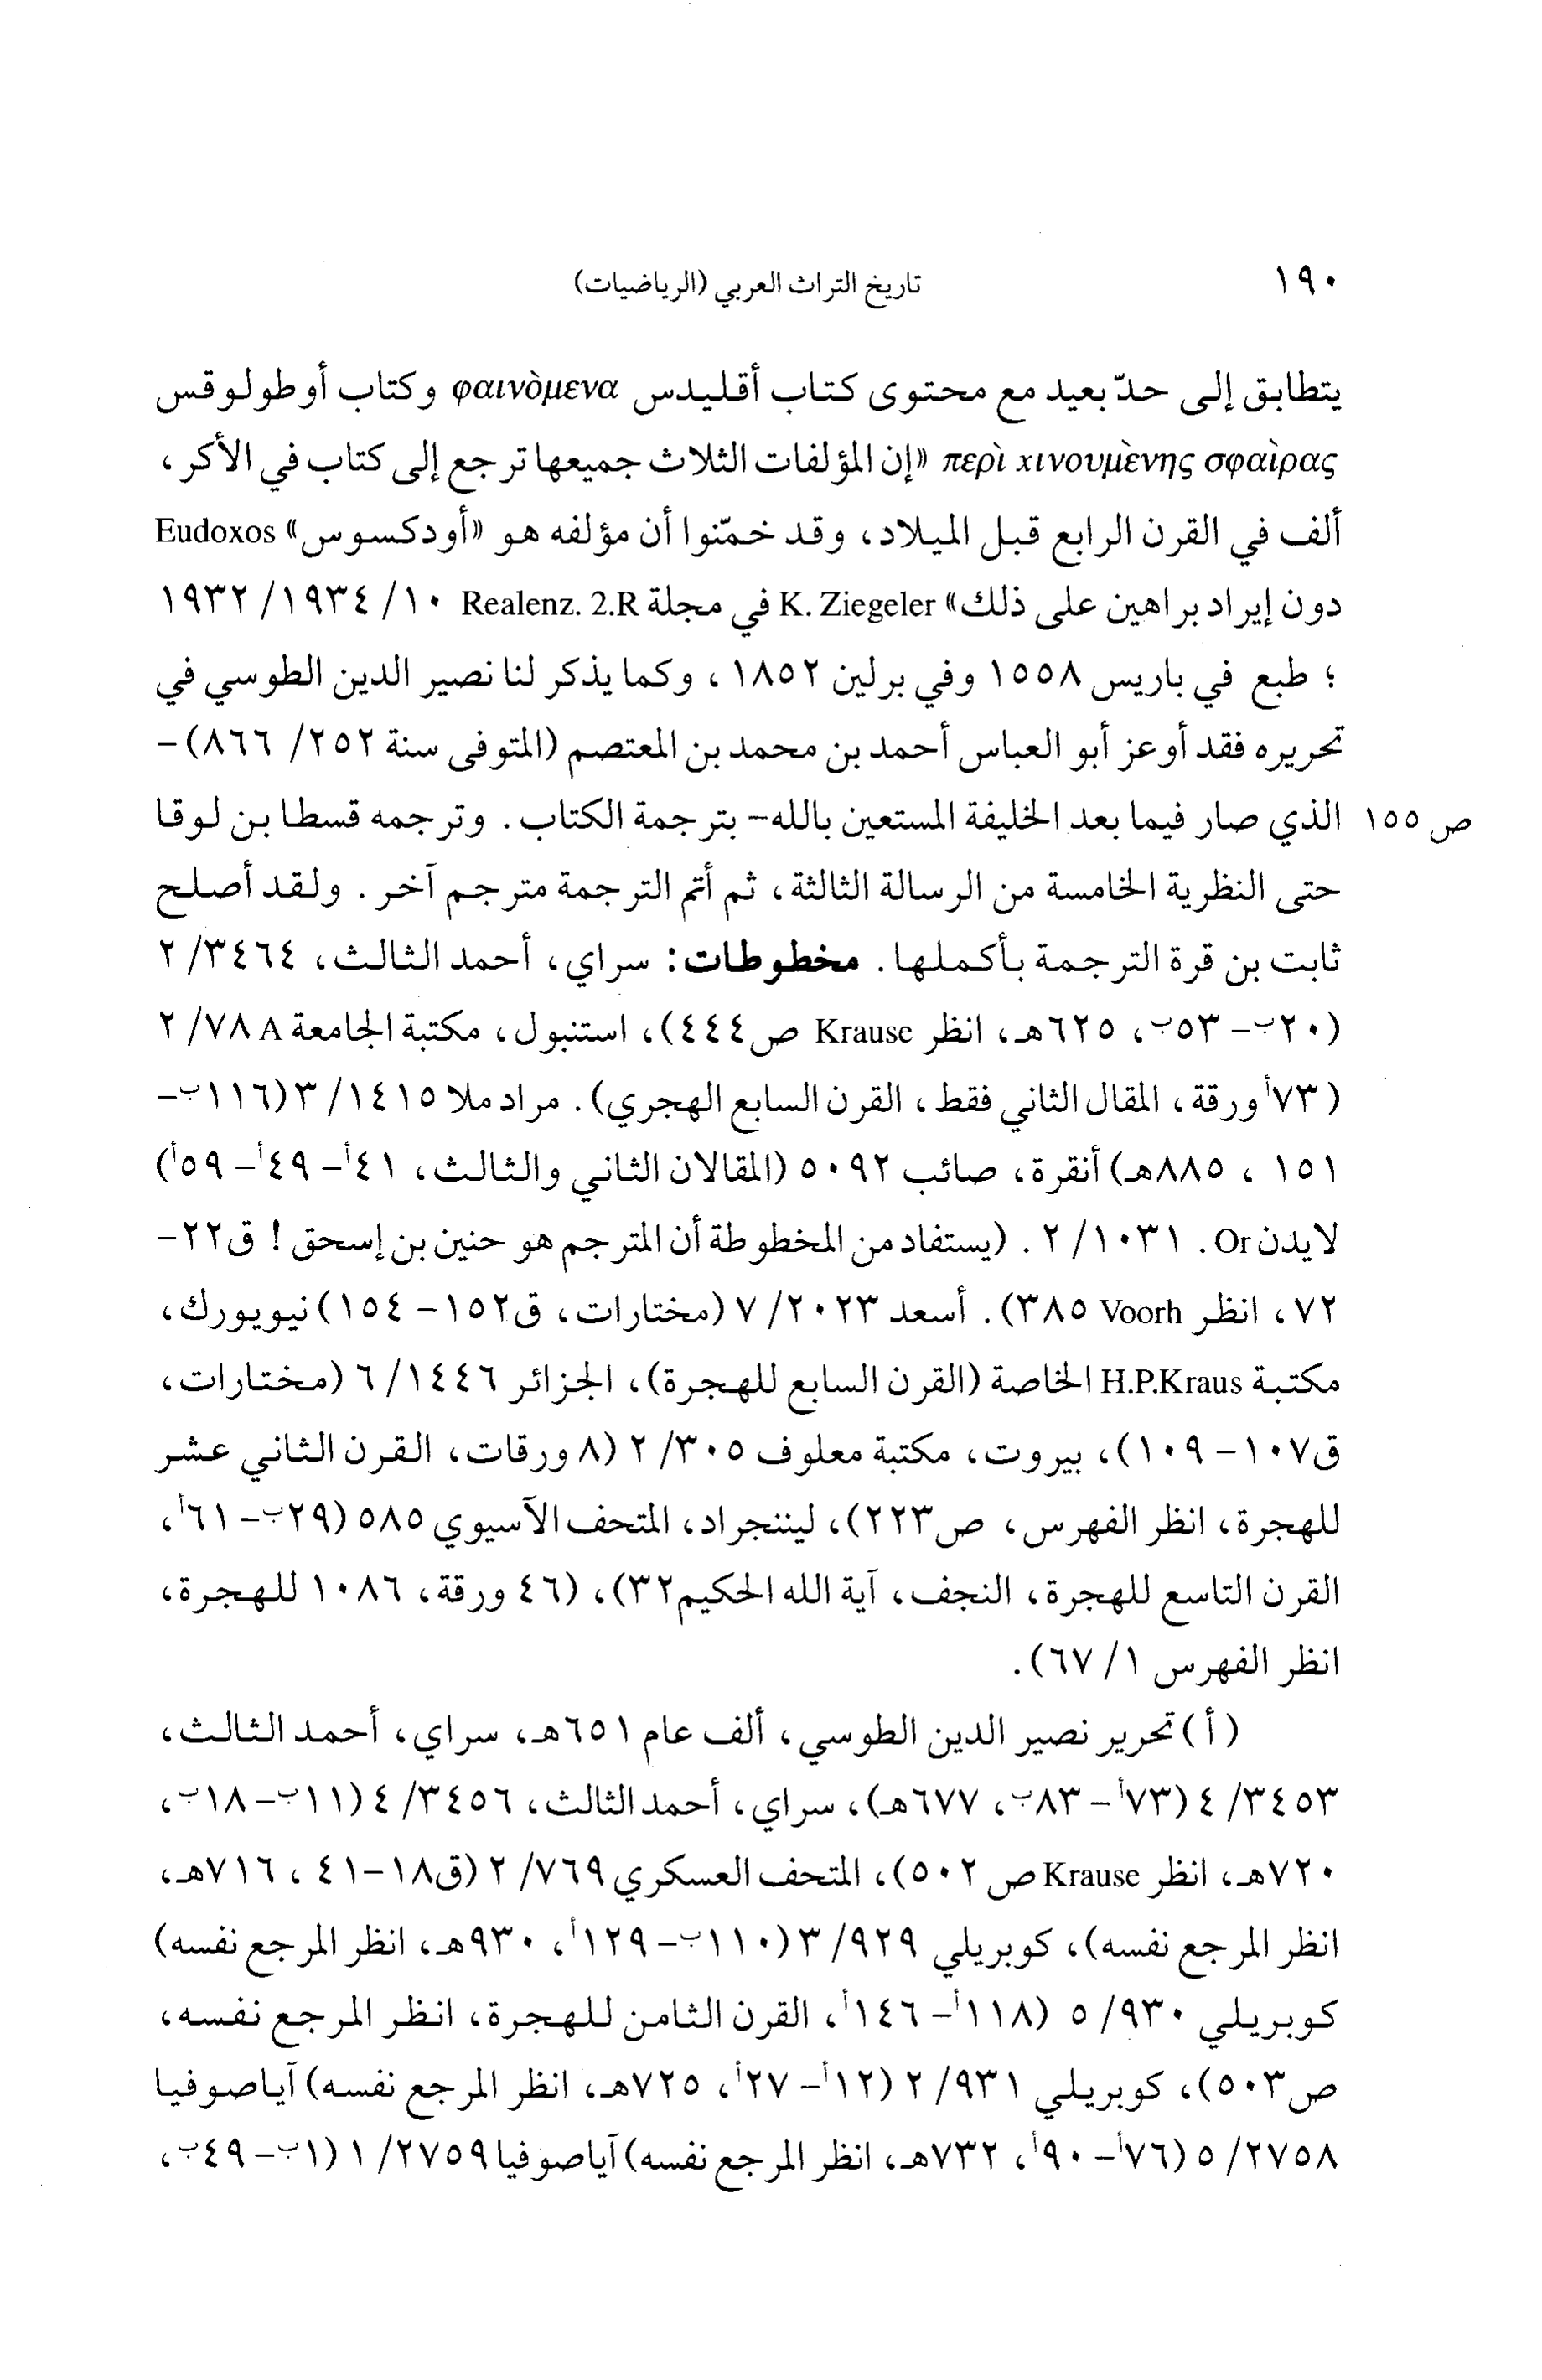 ١٩٠ تاريخ التراث العربي (الرياضيات)
يتطابق إلى حدّ بعيد مع محتوى كتاب أقليدس φαινὸμενα وكتاب أوطولوقس
περὶ χινουμὲνης σφαὶρας «إن المؤلفات الثلاث جميعها ترجع إلى كتاب في الأكر،
ألف في القرن الرابع قبل الميلاد، وقد خمّنوا أن مؤلفه هو «أودكسوس» Eudoxos
دون إيراد براهين على ذلك» K. Ziegeler في مجلة Realenz. 2.R ١٠/ ١٩٣٤/ ١٩٣٢
؛ طبع في باريس ١٥٥٨ وفي برلين ١٨٥٢، وكما يذكر لنا نصير الدين الطوسي في
تحريره فقد أوعز أبو العباس أحمد بن محمد بن المعتصم (المتوفى سنة ٢٥٢/ ٨٦٦)-
ص ١٥٥ الذي صار فيما بعد الخليفة المستعين بالله- بترجمة الكتاب. وترجمه قسطا بن لوقا
حتى النظرية الخامسة من الرسالة الثالثة، ثم أتم الترجمة مترجم آخر. ولقد أصلح
ثابت بن قرة الترجمة بأكملها. مخطوطات: سراي، أحمد الثالث، ٣٤٦٤/ ٢
(٢٠ب- ٥٣ب، ٦٢٥هـ، انظر Krause ص٤٤٤)، استنبول، مكتبة الجامعة A ٧٨/ ٢
(٧٣أ ورقة، المقال الثاني فقط، القرن السابع الهجري). مراد ملا ١٤١٥/ ٣(١١٦ب-
١٥١، ٨٨٥هـ) أنقرة، صائب ٥٠٩٢ (المقالان الثاني والثالث، ٤١أ- ٤٩أ- ٥٩أ)
لايدن Or. ١٠٣١/ ٢. (يستفاد من المخطوطة أن المترجم هو حنين بن إسحق! ق٢٢-
٧٢، انظر Voorh ٣٨٥). أسعد ٢٠٢٣/ ٧ (مختارات، ق١٥٢- ١٥٤) نيويورك،
مكتبة H.P.Kraus الخاصة (القرن السابع للهجرة)، الجزائر ١٤٤٦/ ٦ (مختارات،
ق١٠٧- ١٠٩)، بيروت، مكتبة معلوف ٣٠٥/ ٢ (٨ ورقات، القرن الثاني عشر
للهجرة، انظر الفهرس، ص٢٢٣)، ليننجراد، المتحف الآسيوي ٥٨٥ (٢٩ب- ٦١أ،
القرن التاسع للهجرة، النجف، آية الله الحكيم٣٢)، (٤٦ ورقة، ١٠٨٦ للهجرة،
انظر الفهرس ١/ ٦٧).
(أ) تحرير نصير الدين الطوسي، ألف عام ٦٥١هـ، سراي، أحمد الثالث،
٣٤٥٣/ ٤ (٧٣أ- ٨٣ب، ٦٧٧هـ)، سراي، أحمد الثالث، ٣٤٥٦/ ٤ (١١ب-١٨ب،
٧٢٠هـ، انظر Krause ص ٥٠٢)، المتحف العسكري ٧٦٩/ ٢ (ق١٨-٤١، ٧١٦هـ،
انظر المرجع نفسه)، كوبريلي ٩٢٩/ ٣ (١١٠ب- ١٢٩أ، ٩٣٠هـ، انظر المرجع نفسه)
كوبريلي ٩٣٠/ ٥ (١١٨أ- ١٤٦أ، القرن الثامن للهجرة، انظر المرجع نفسه،
ص٥٠٣)، كوبريلي ٩٣١/ ٢ (١٢أ- ٢٧أ، ٧٢٥هـ، انظر المرجع نفسه) آياصوفيا
٢٧٥٨/ ٥ (٧٦أ- ٩٠أ، ٧٣٢هـ، انظر المرجع نفسه) آياصوفيا ٢٧٥٩/ ١ (١ب- ٤٩ب،